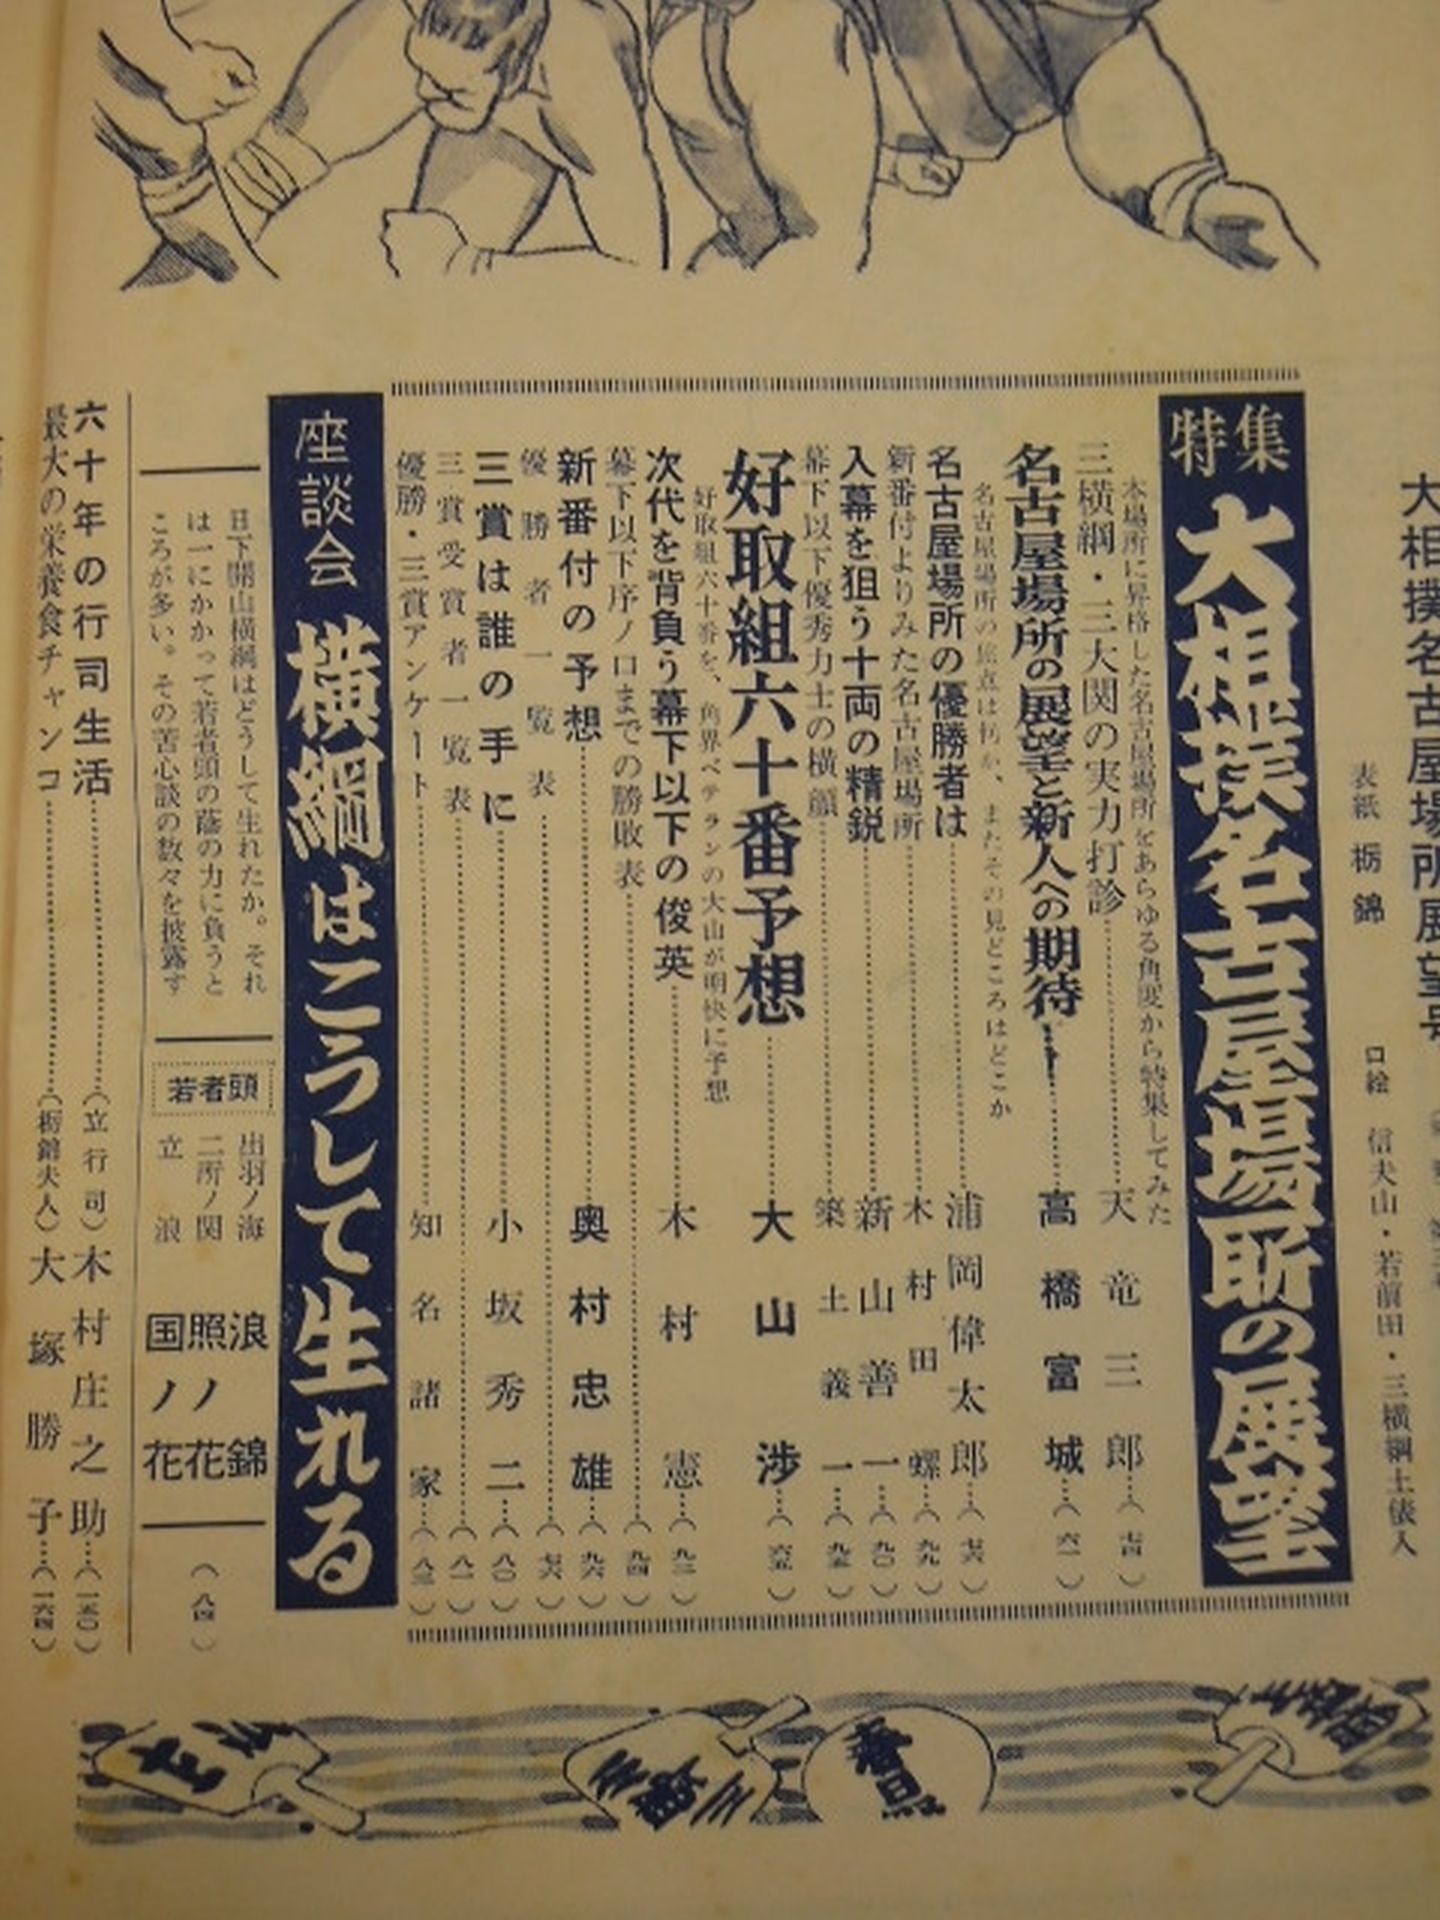 大相撲名古屋場所展望号
表紙 栃錦
口絵 信夫山・若前田・三横綱土俵入
特集 大相撲名古屋場所の展望
本場所に昇格した名古屋場所をあらゆる角度から特集してみた
三横綱・三大関の実力打診 天竜三郎
名古屋場所の展望と新人への期待 高橋富城（六一）
名古屋場所の焦点は何か、またその見どころはどこか
名古屋場所の優勝者は 浦岡偉太郎（七六）
新番付よりみた名古屋場所 木村田螺（九九）
入幕を狙う十両の精鋭 新山善一（九〇）
幕下以下優秀力士の横顔 築土義一
好取組六十番予想 大山渉（六五）
好取組六十番を、角界ベテランの大山が明快に予想
次代を背負う幕下以下の俊英 木村憲（九二）
幕下以下序ノ口までの勝敗表（九四）
新番付の予想 奥村忠雄（九六）
優勝者一覧表
三賞は誰の手に 小坂秀二（八〇）
三賞受賞者一覧表（八一）
優勝・三賞アンケート 知名諸家
座談会 横綱はこうして生れる
日下開山横綱はどうして生れたか。それ
は一にかかって若者頭の蔭の力に負うと
ころが多い。その苦心談の数々を披露す
若者頭
出羽ノ海 浪錦
二所ノ関 照ノ花
立浪 国ノ花
（八四）
六十年の行司生活（立行司）木村庄之助（一五〇）
最大の栄養食チャンコ（栃錦夫人）大塚勝子（一六四）